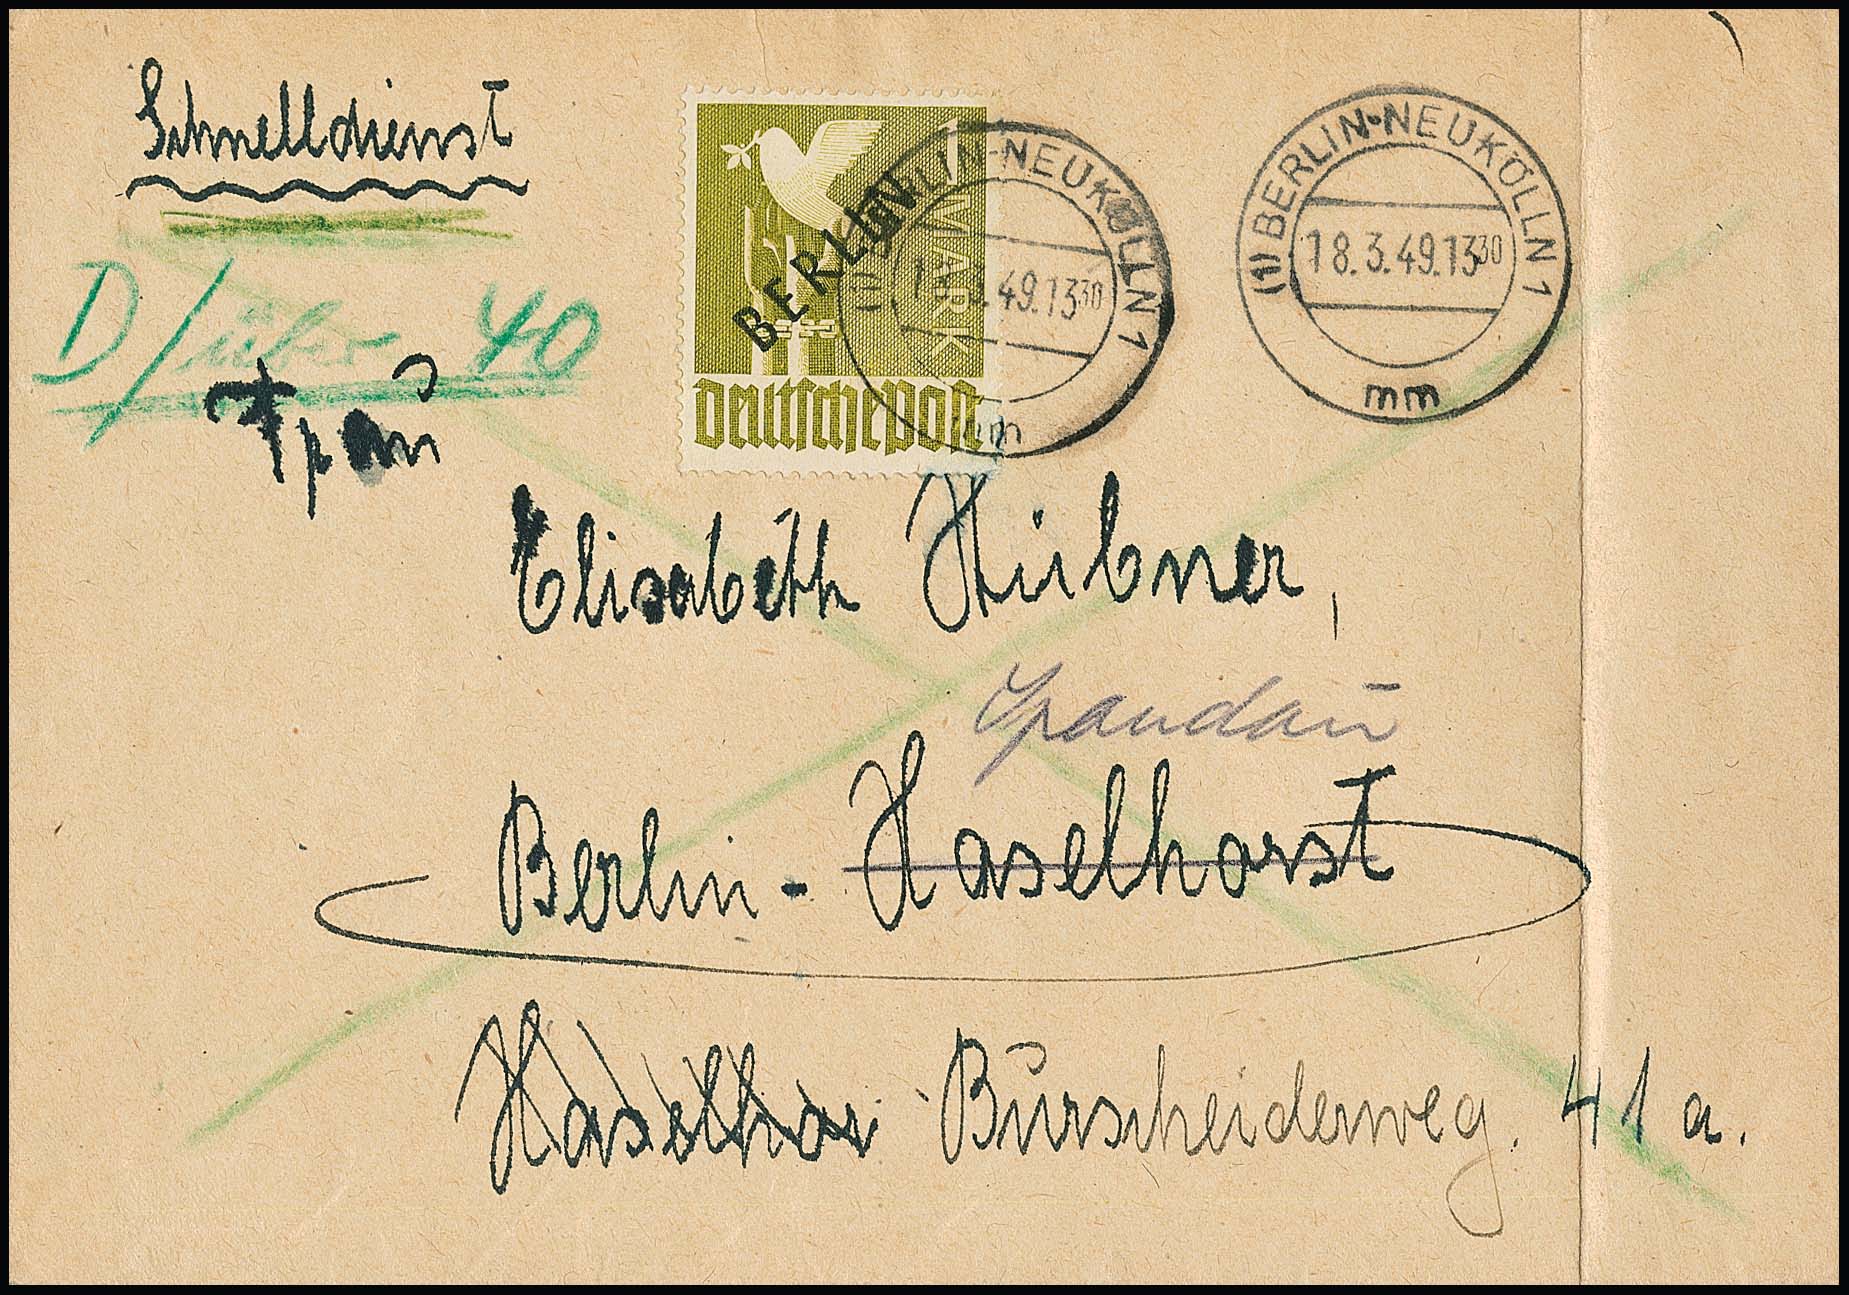 Schnelldienst
D/über 40
Span
1 MARK
BERLIN
deutsche post
(1) BERLIN-NEUKÖLLN 1
49.13³⁰
mm
(1) BERLIN-NEUKÖLLN 1
18.3.49.13³⁰
mm
Elisabeth Hübner,
Spandau
Berlin - Haselhorst
Haselhor Burscheiderweg. 41 a.